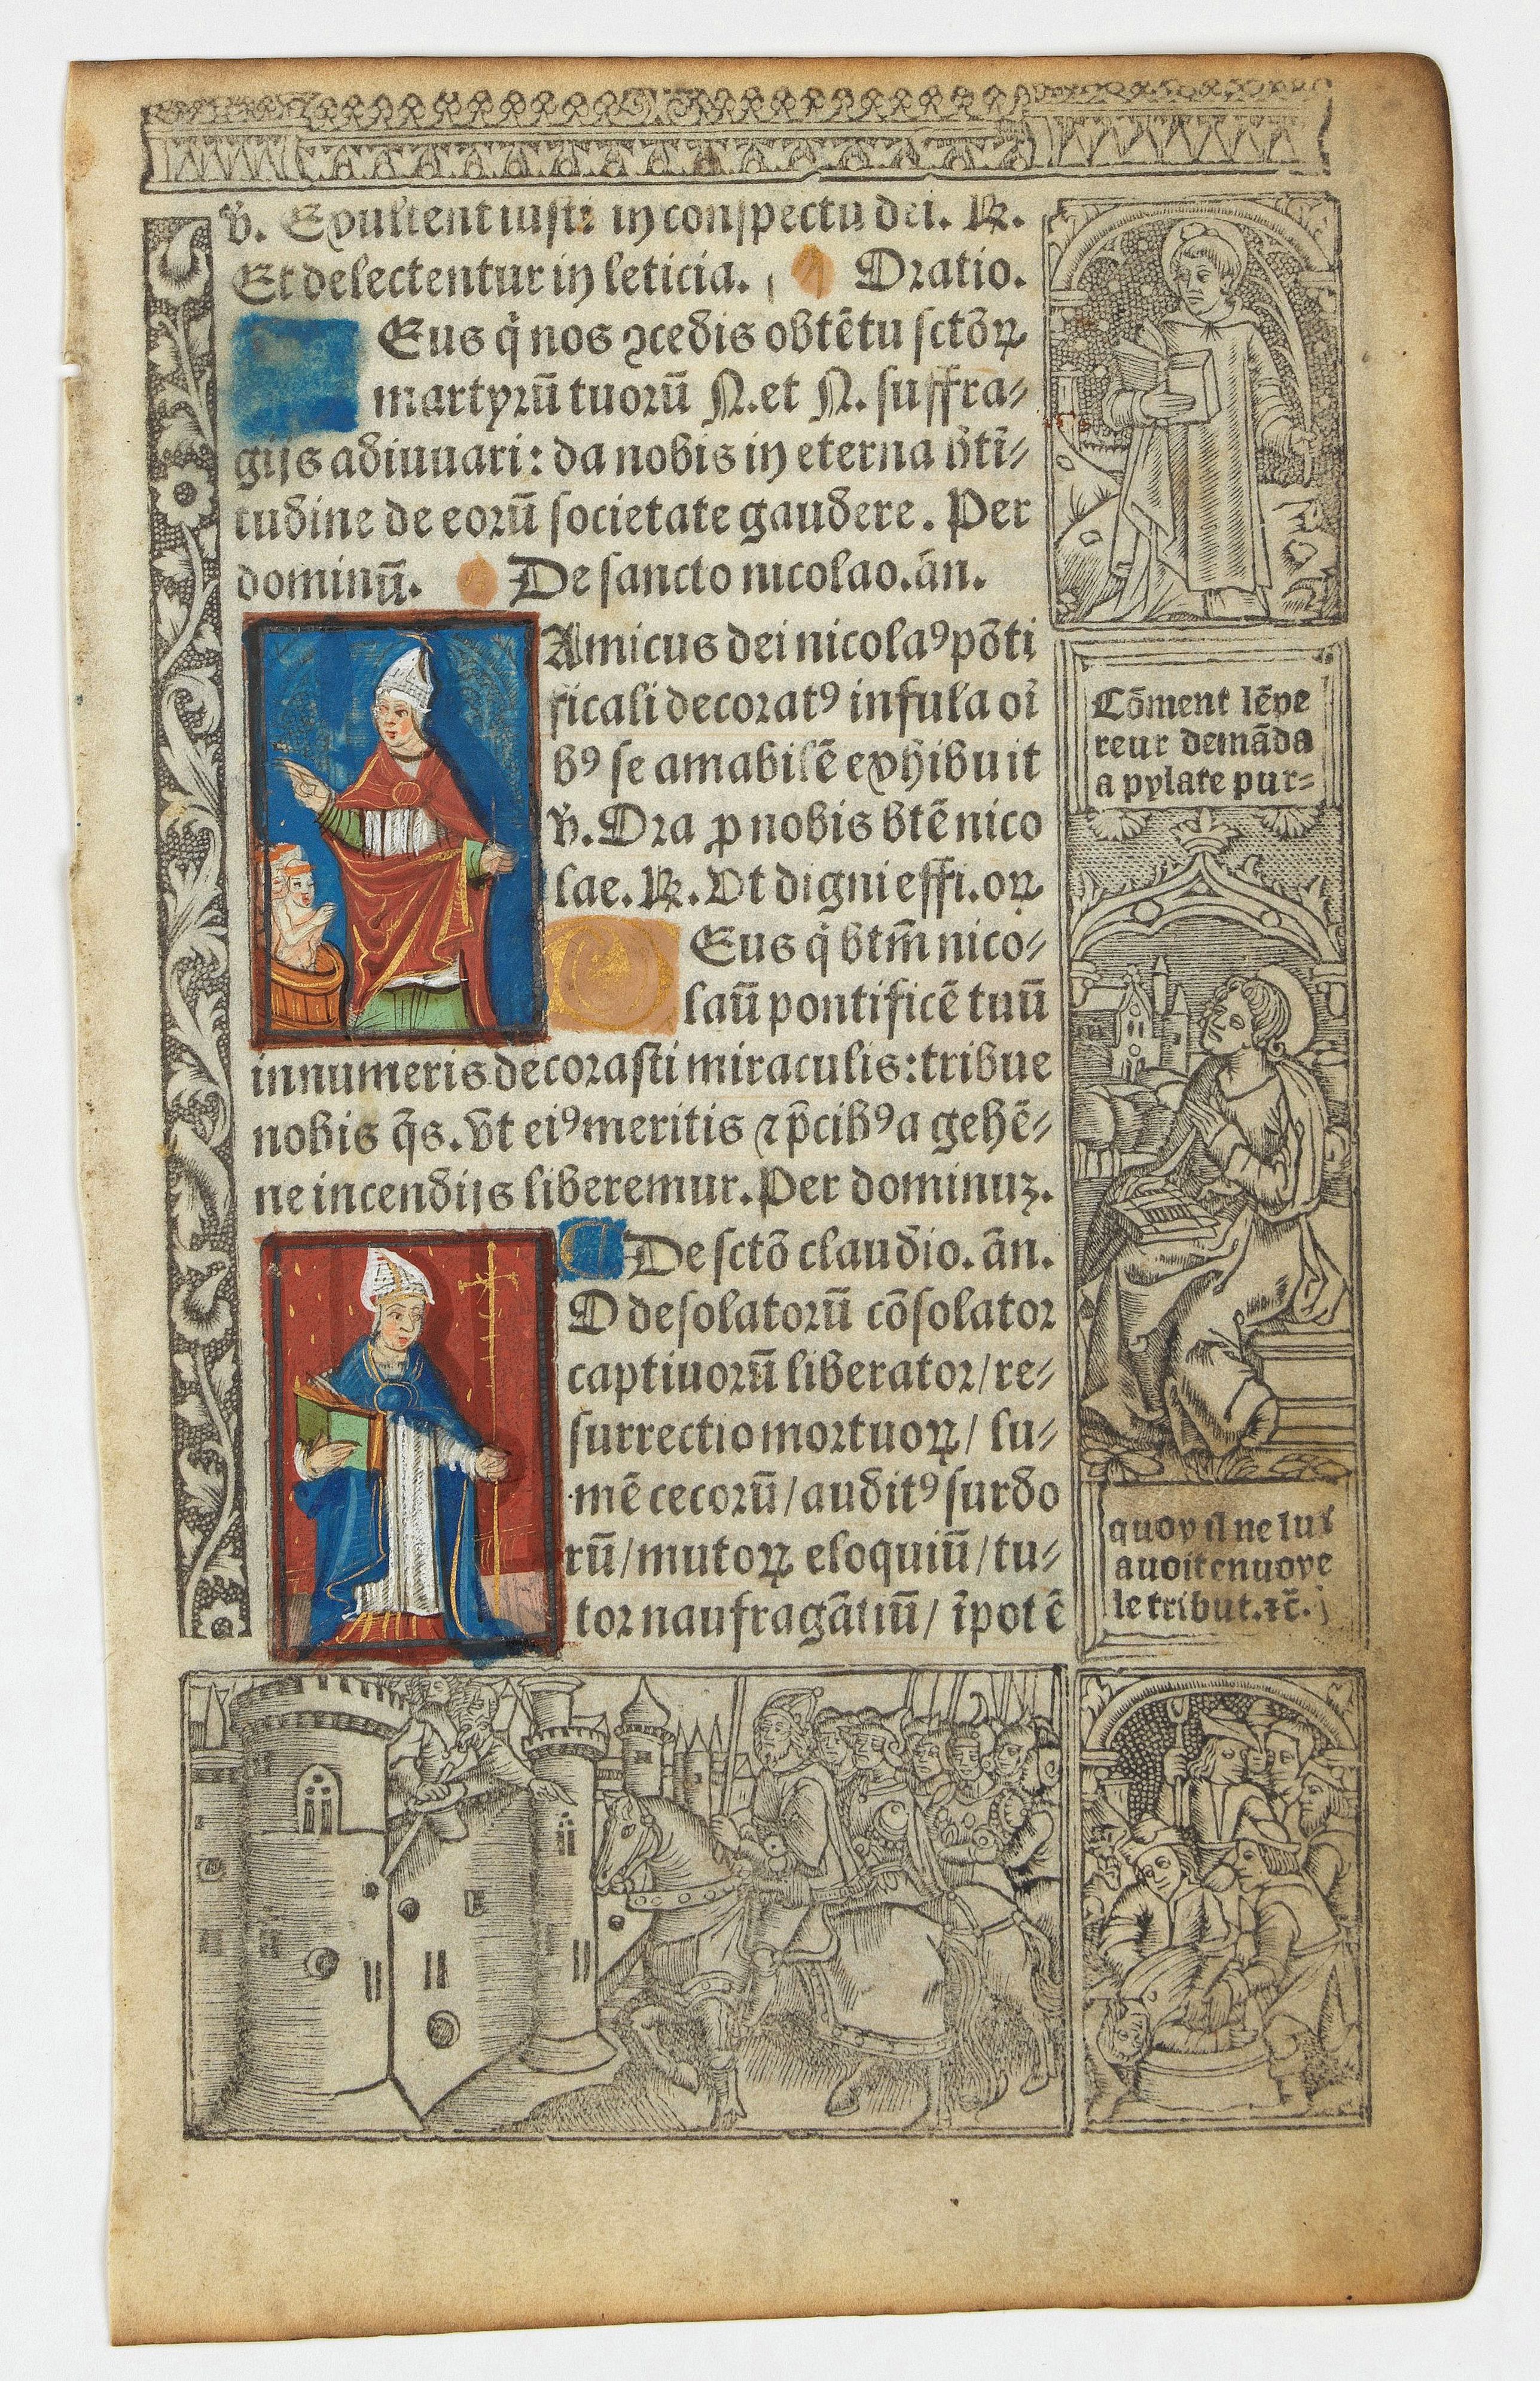 v̄. Exultent iusti in conspectu dei. ℞.
Et delectentur in leticia. Oratio.
Eus q̄ nos ꝯcedis obtētu sctōꝝ
martyrū tuorū N. et N. suffra-
giis adiuuari: da nobis in eterna b̄ti-
tudine de eorū societate gaudere. Per
dominū. De sancto nicolao. ān.
Amicus dei nicolaꝰ pōti
ficali decoratꝰ infula oī
bꝰ se amabilē exhibuit
v̄. Ora ꝓ nobis btē nico
lae. ℞. Vt digni effi. oꝝ
Eus q̄ btm̄ nico-
laū pontificē tuū
innumeris decorasti miraculis: tribue
nobis q̄s. vt eiꝰ meritis ⁊ p̄cibꝰ a gehē-
ne incendiis liberemur. Per dominuꝫ.
De sctō claudio. ān.
O desolatorū cōsolator
captiuorū liberator/ re-
surrectio mortuoꝝ/ lu-
mē cecorū/ auditꝰ surdo
rū/ mutoꝝ eloquiū/ tu-
tor naufragātiū/ īpotē
Cōment lēpe
reur demāda
a pylate pur-
quoy il ne lui
auoit enuoye
le tribut. ⁊c̄.